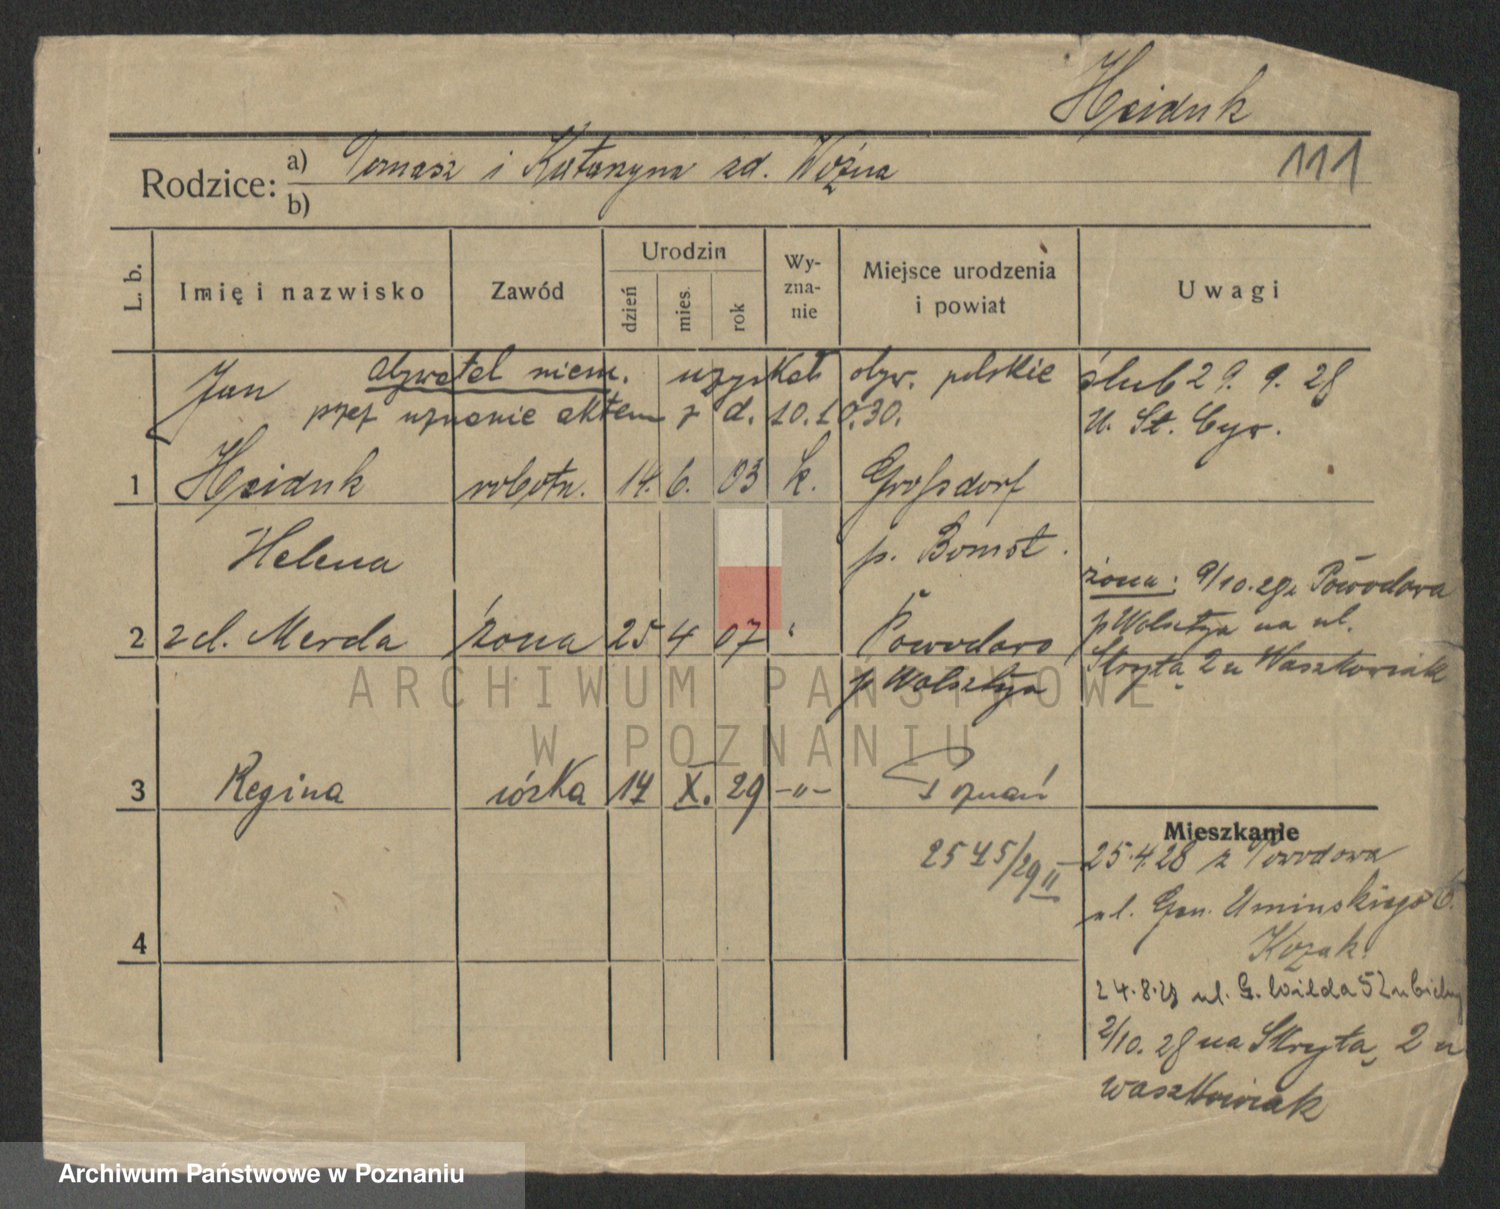 Heiduk
111
Rodzice: a) Tomasz i Katarzyna zd. Woźna
b)
L. b. Imię i nazwisko Zawód Urodzin dzień mies. rok Wyznanie Miejsce urodzenia i powiat Uwagi
Jan obywatel niem. uzyskał obyw. polskie
przez uznanie aktem z d. 10.10.30.
ślub 29. 9. 28
U. St. Cyw.
1 Heiduk robotn. 14. 6. 03 k. Großdorf
p. Bomst.
Helena
2 zd. Merda żona 25 4 07 " Powodowo
p Wolsztyn
żona: 9/10.28 z Powodowa
p Wolsztyn na ul.
Skrytą 2 u Waszkowiak
3 Regina córka 17 X. 29 -"- Poznań
2545/29 II
4
Mieszkanie
25.4.28 z Powodowa
ul. Gen. Umińskiego 6.
Kozak
24.8.28 ul. G. Wilda 52
2/10. 28 na Skrytą 2 u
Waszkowiak
ARCHIWUM PAŃSTWOWE
W POZNANIU
Archiwum Państwowe w Poznaniu